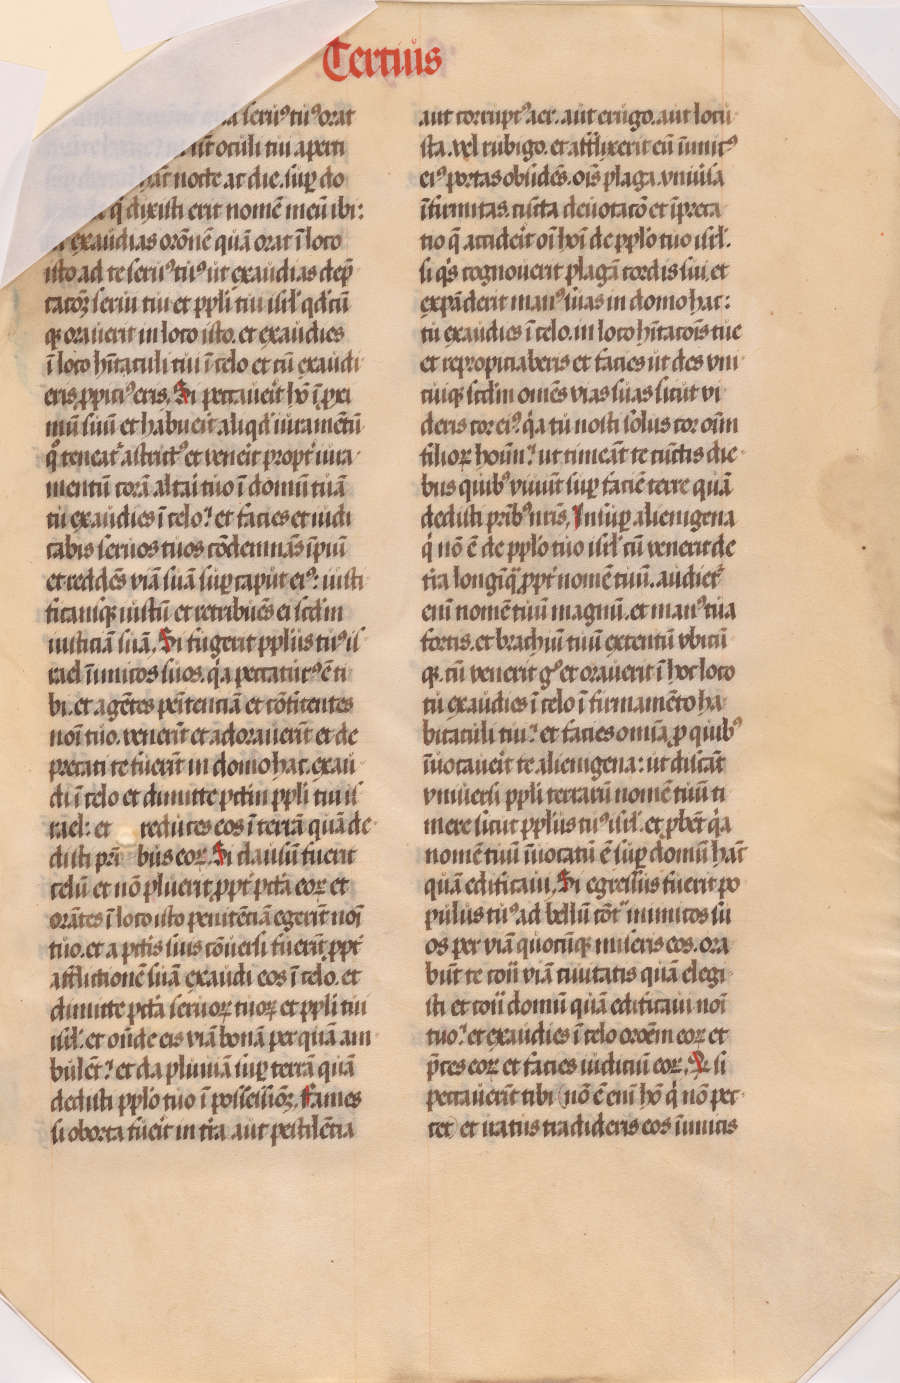 Tertius
seruꝰ tuꝰ orat
ut oculi tui aperti
hāc nocte ac die. suꝑ do
q̄ dixisti erit nomē meū ibi:
exaudias orōnē quā orat ī loco
isto ad te seruꝰ tuꝰ ut exaudias dep̄
catōꝫ serui tui et ppl̓i tui isrl̓ qd̓cū
qꝫ orauerit in loco isto. et exaudies
ī loco hītaculi tui ī celo et cū exaudi
eris ꝓpiciꝰ eris. Si peccaueit hō ī ꝓxi
mū suū et habueit aliqd̓ iuramētū
q̊ teneat̓ astrictꝰ et veneit propt̓ iura
mentū corā altai tuo ī domū tuā
tu exaudies ī celo? et facies et iudi
cabis seruos tuos cōdemnās īpiū
et reddēs viā suā suꝑ caput eiꝰ: iusti
ficansqꝫ iustū et retribuēs ei scd̓m
iusticiā suā. Si fugerit ppl̓us tuꝰ is
rael īimicos suos. q̓a peccaturꝰ ē ti
bi. et agētes peītenciā et cōfitentes
noī tuo. venerīt et adorauerīt et de
precati te fuerīt in domo hac. exau
di ī celo et dimitte pctm̄ ppl̓i tui is
rael: et reduces eos ī terrā quā de
disti prī bus eoꝝ. Si clausū fuerit
celū et nō pluerit ꝓpt̓ pctā eoꝝ et
orātes ī loco isto penitēciā egerīt noī
tuo. et a pctīs suis cōuersi fuerīt ꝓpt̓
afflictionē suā exaudi eos ī celo. et
dimitte pctā seruoꝝ tuoꝝ et ppl̓i tui
isrl̓. et on̄de eis viā bonā per quā am
bulēt? et da pluuiā suꝑ terrā quā
dedisti ppl̓o tuo ī possessiōꝫ. Fames
si oborta fueit in tr̄a aut pestilētia
aut corruptꝰ aer. aut erugo. aut locu
sta. vel rubigo. et afflixerit eū īimicꝰ
eiꝰ portas obsidēs. oīs plaga. vniūsa
īfirmitas. cūcta deuotatō et īpreca
tio q̄ accideit oī hoī de ppl̓o tuo isrl̓.
si q̓s cognouerit plagā cordis sui. et
expāderit manꝰ suas in domo hac:
tu exaudies ī celo. in loco hītatōis tue
et repropiciaberis et facies ut des vni
cuiqꝫ scd̓m omēs vias suas sicut vi
deris cor eiꝰ. q̓a tu nosti solus cor oīm
filioꝝ hoīm? ut timeāt te cūctis die
bus quibꝰ viuūt suꝑ faciē terre quā
dedisti prībꝰ nr̄is. Insuꝑ alienigena
q̓ nō ē de ppl̓o tuo isrl̓ cū venerit de
tr̄a longīqua ꝓpt̓ nomē tuū. audiet̓
enī nomē tuū magnū. et manꝰ tua
fortis. et brachiū tuū extentū vbicū
qꝫ. cū venerit gͦ et orauerit ī hoc loco
tu exaudies ī celo ī firmamēto ha
bitaculi tui? et facies omīa ꝓ quibꝰ
īuocaueit te alienigena: ut discāt
vniuersi ppl̓i terrarū nomē tuū ti
mere sicut ppl̓us tuꝰ isrl̓. et ꝓbēt q̓a
nomē tuū īuocatū ē suꝑ domū hāc
quā edificaui. Si egressus fuerit po
pulus tuꝰ ad bellū cōt̓ inimicos su
os per viā quocūqꝫ miseris eos. ora
būt te coī viā ciuitatis quā elegi
sti et coī domū quā edificaui noī
tuo? et exaudies ī celo oroēm eoꝝ et
p̄ces eoꝝ et facies iudiciū eoꝝ. Qꝫ si
peccauerīt tibi nō ē enī hō q̓ nō pec
cet et iratus tradideris eos īimicis